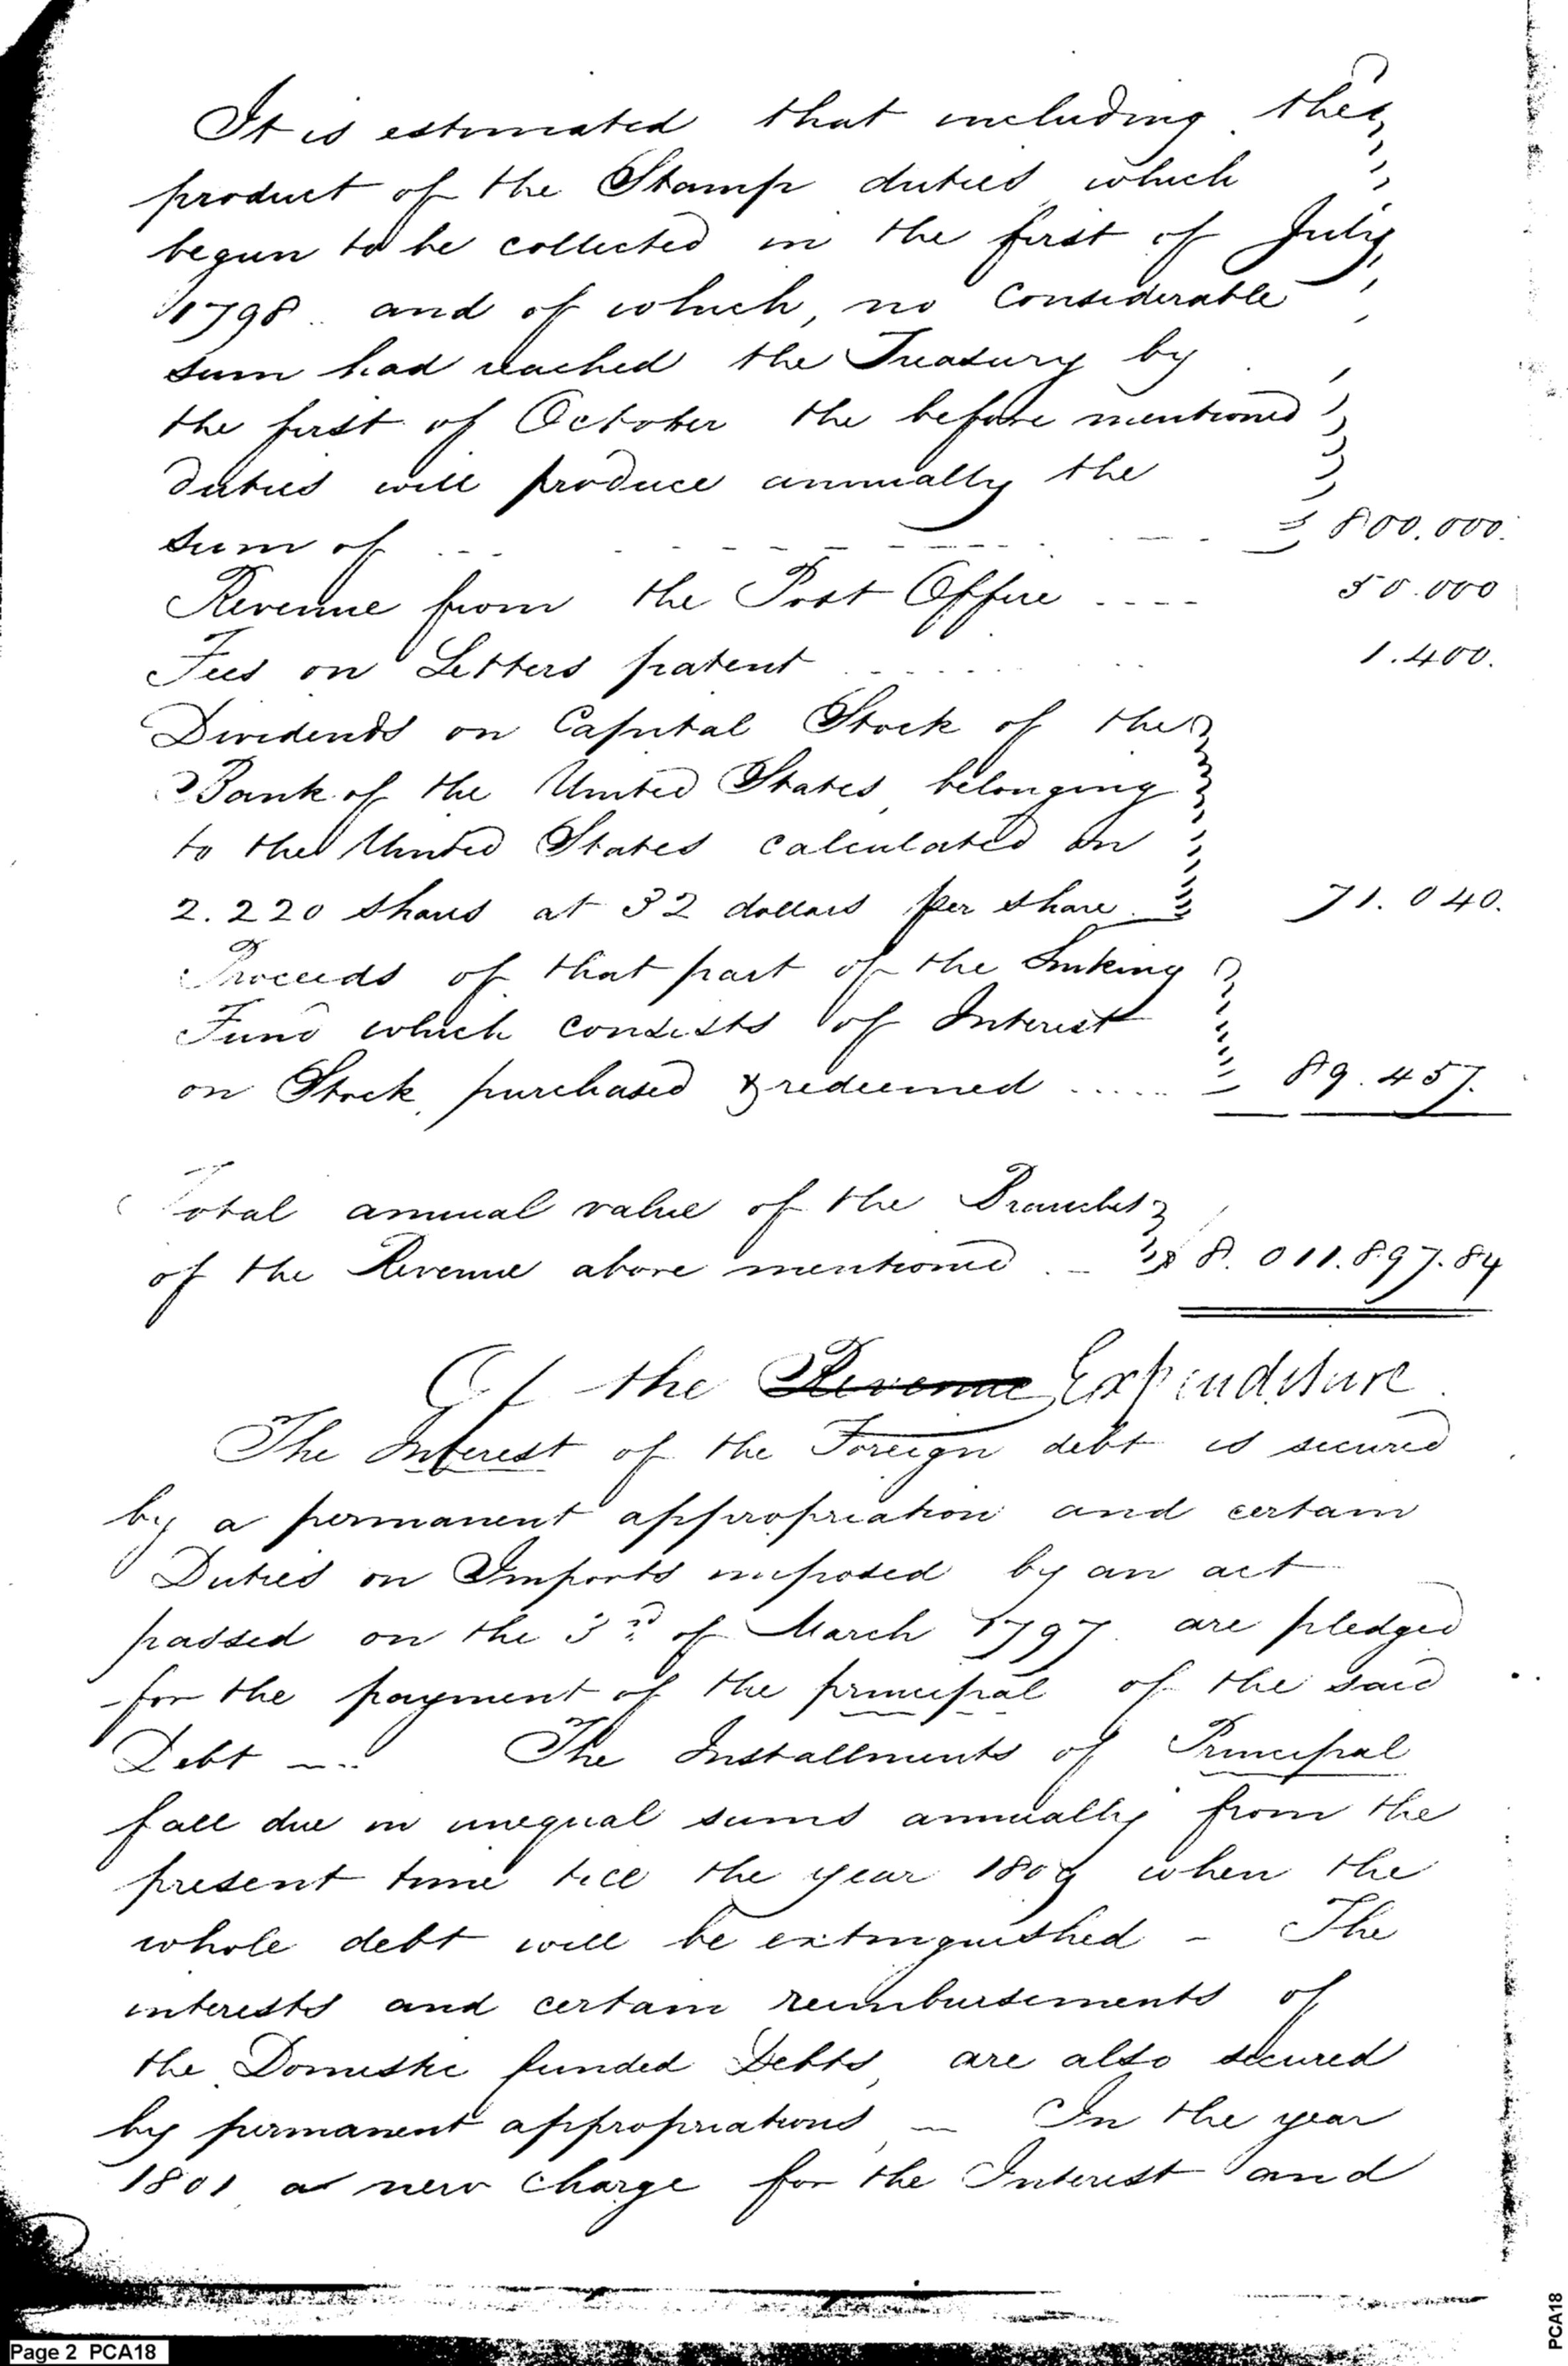 It is estimated that including the
product of the Stamp duties which
begun to be collected in the first of July
1798 .. and of which, no Considerable
sum had reached the Treasury by
the first of October the before mentioned
duties will produce annually the
sum of ... - - - - - - 800.000.
Revenue from the Post Office .... 50.000
Fees on Letters patent ........ 1.400.
Dividends on Capital Stock of the
Bank of the United States, belonging
to the United States calculated on
2.220 shares at 32 dollars per share. 71.040.
Proceeds of that part of the Sinking
Fund which consists of Interest
on Stock, purchased & redeemed ..... 89.457.
Total annual value of the Branches
of the Revenue above mentioned . _ $ 8.011.897.84
Of the Revenue Expenditure
The Interest of the Foreign debt is secured
by a permanent appropriation and certain
Duties on Imports imposed by an act
passed on the 3rd of March 1797. are pledged
for the payment of the principal of the said
Debt — .. The Installments of Principal
fall due in unequal sums annually from the
present time till the year 1809 when the
whole debt will be extinguished - The
interests and certain reimbursements of
the Domestic funded Debts, are also secured
by permanent appropriations, — In the year
1801 a new charge for the Interest and
Page 2 PCA18
PCA18